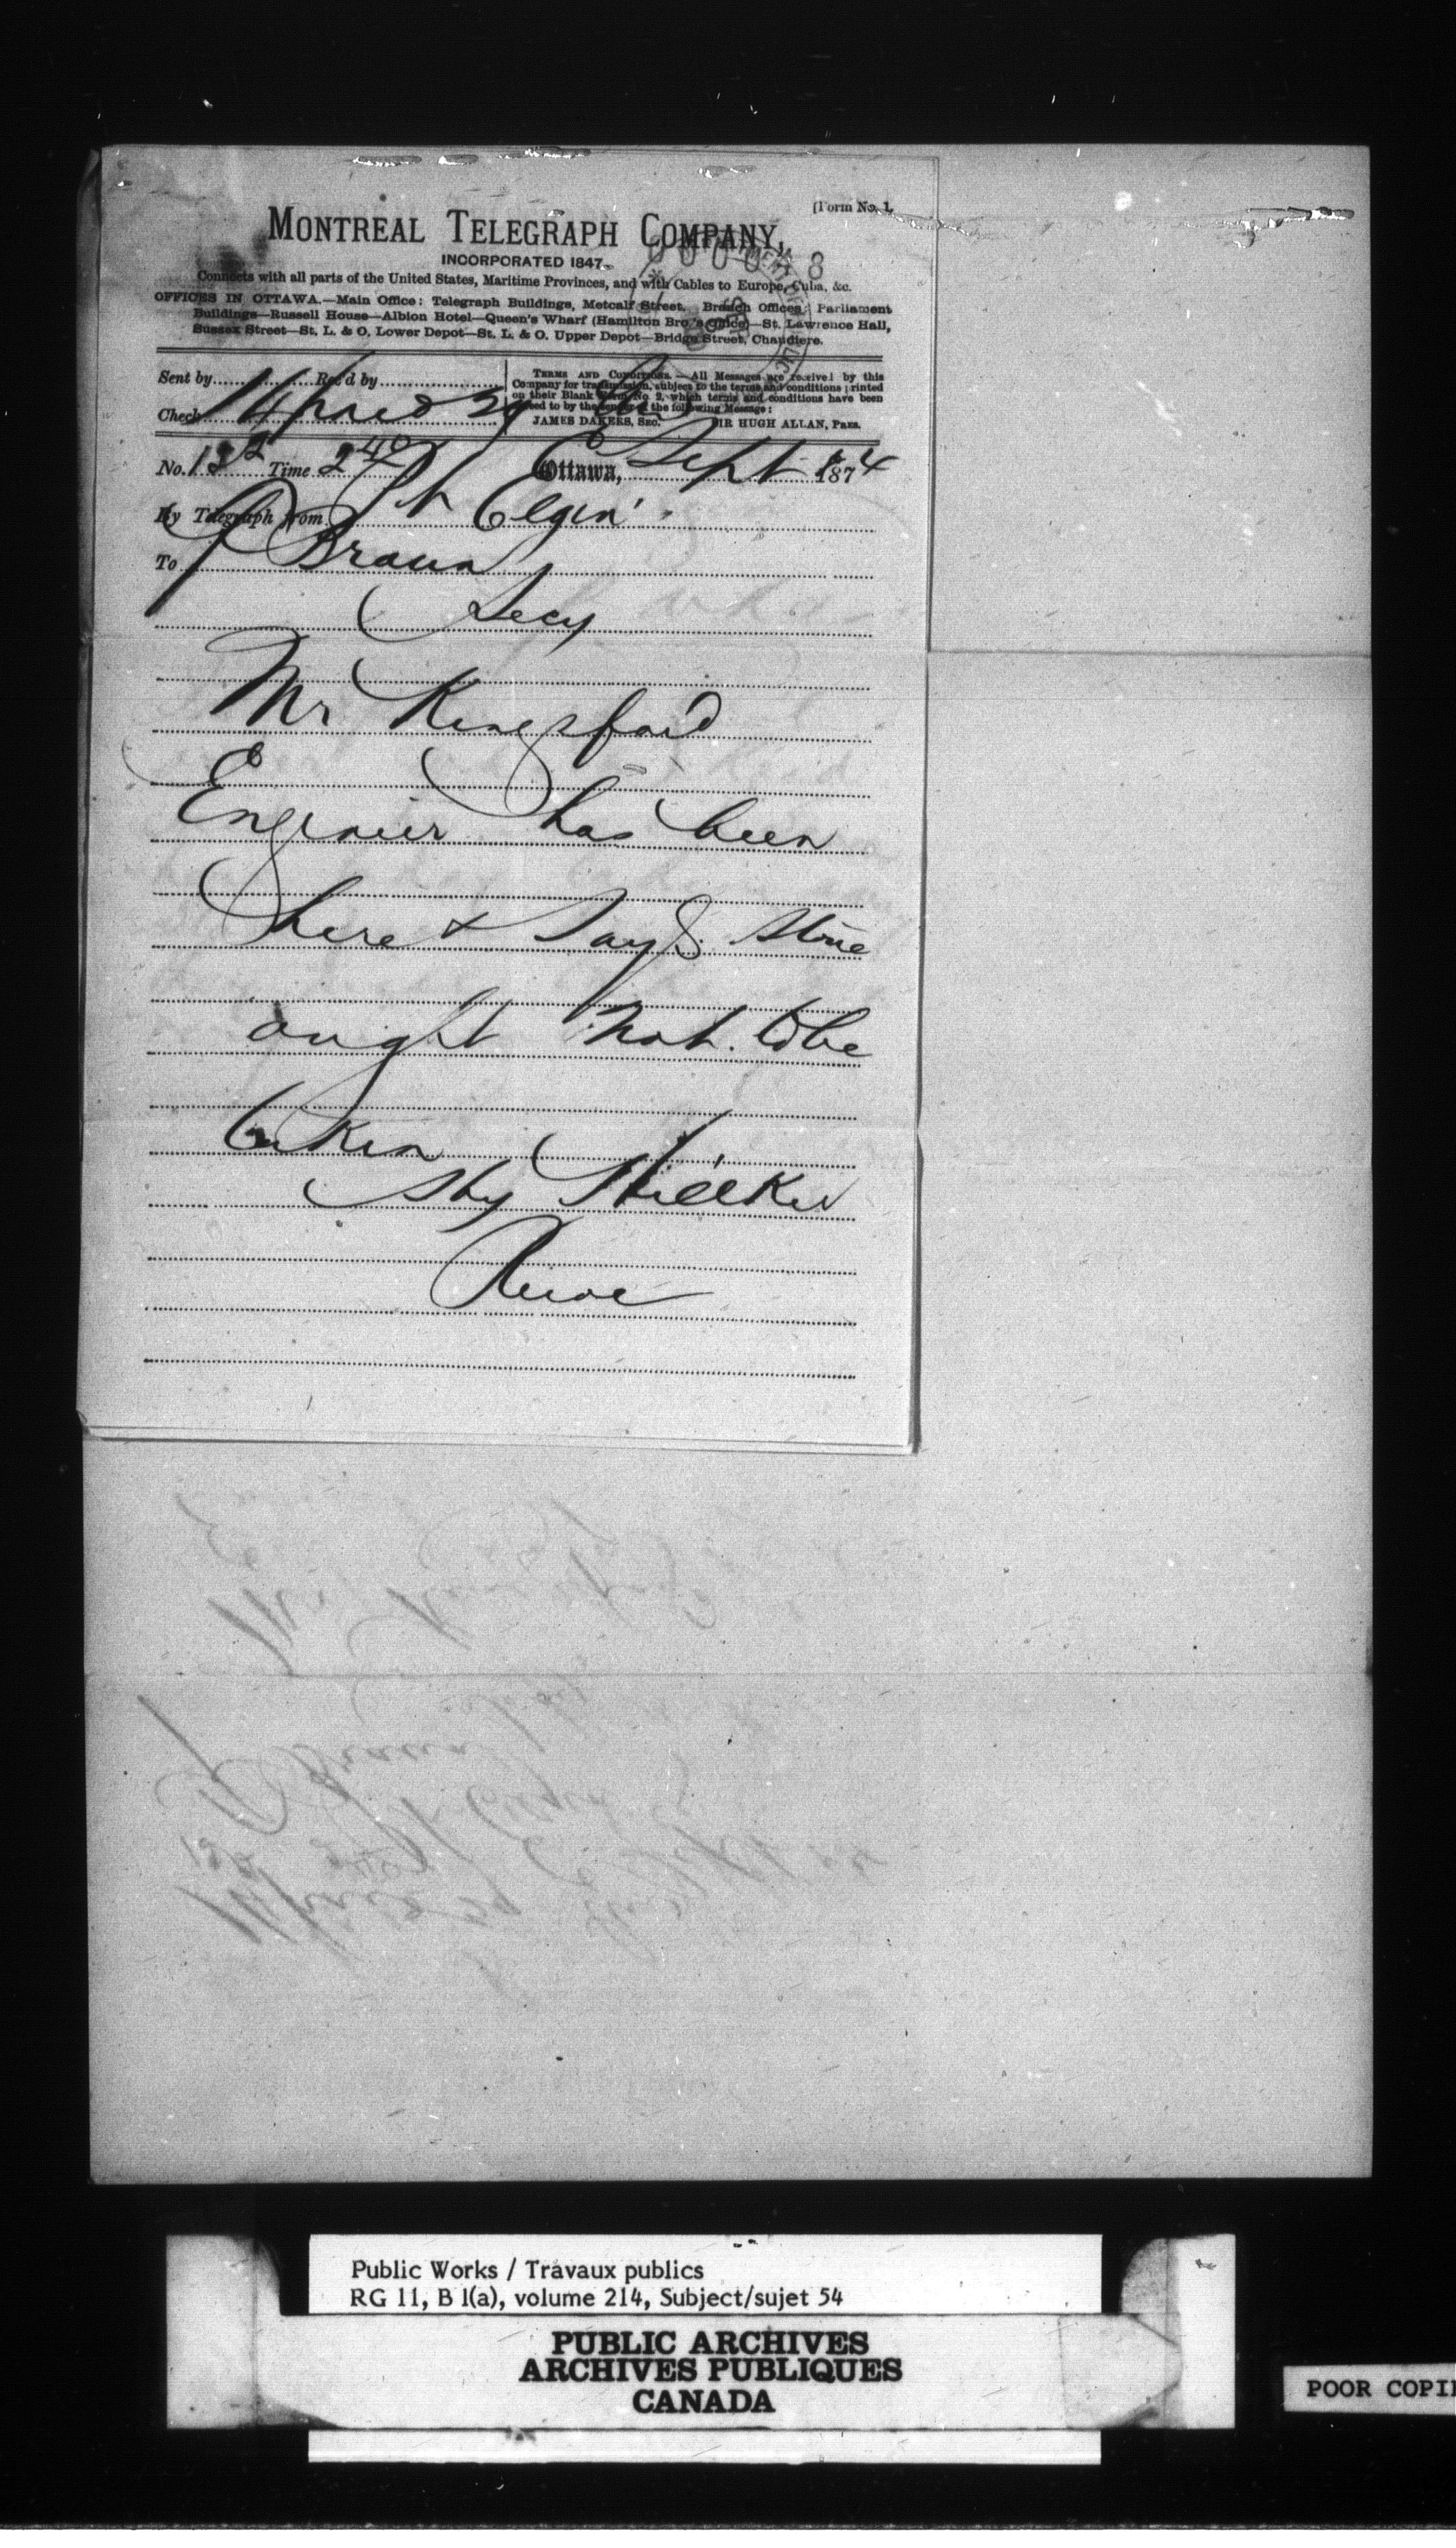 [Form No. 1.
MONTREAL TELEGRAPH COMPANY,
INCORPORATED 1847.
Connects with all parts of the United States, Maritime Provinces, and with Cables to Europe, Cuba, &c.
OFFICES IN OTTAWA.—Main Office: Telegraph Buildings, Metcalf Street. Branch Offices: Parliament
Buildings—Russell House—Albion Hotel—Queen's Wharf (Hamilton Bro.'s Office)—St. Lawrence Hall,
Sussex Street—St. L. & O. Lower Depot—St. L. & O. Upper Depot—Bridge Street, Chaudiere.
Sent by Rec'd by
Check 14 paid 39
TERMS AND CONDITIONS.—All Messages are received by this
Company for transmission, subject to the terms and conditions printed
on their Blank Form No. 2, which terms and conditions have been
agreed to by the sender of the following Message:
JAMES DAKERS, SEC. SIR HUGH ALLAN, PRES.
No. 132 Time 240 Ottawa, Sept 1874
By Telegraph from Pt Elgin
To F Braun
Secy
Mr Kingsford
Engineer has been
here & Says stone
ought not to be
taken
Hy
Public Works / Travaux publics
RG 11, B 1(a), volume 214, Subject/sujet 54
PUBLIC ARCHIVES
ARCHIVES PUBLIQUES
CANADA
POOR COPI